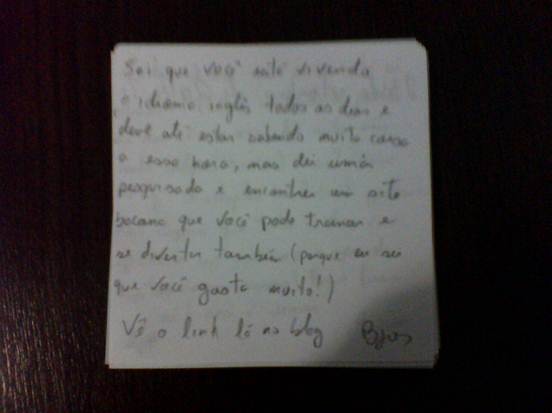 Sei que você está vivendo
o idioma inglês todos os dias e
deve até estar sabendo muita coisa
a essa hora, mas dei uma
pesquisada e encontrei um site
bacana que você pode treinar e
se divertir também (porque eu sei
que você gosta muito!)
Vê o link lá no blog Bjos